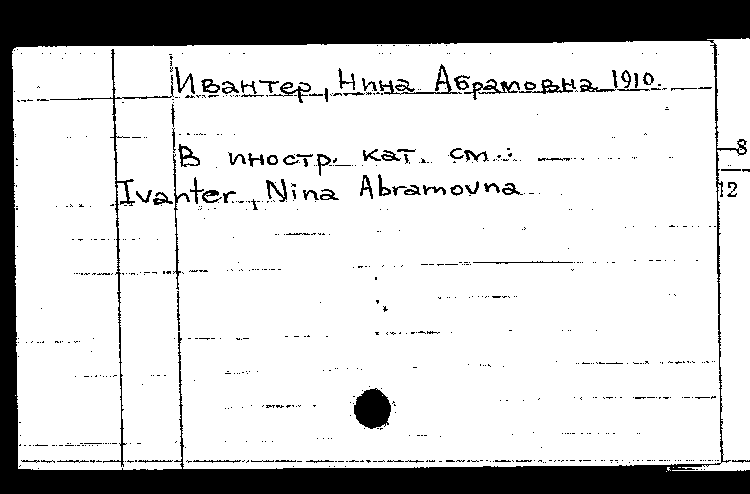 Ивантер, Нина Абрамовна 1910.
В иностр. кат. см.:
Ivanter, Nina Abramovna
8
12